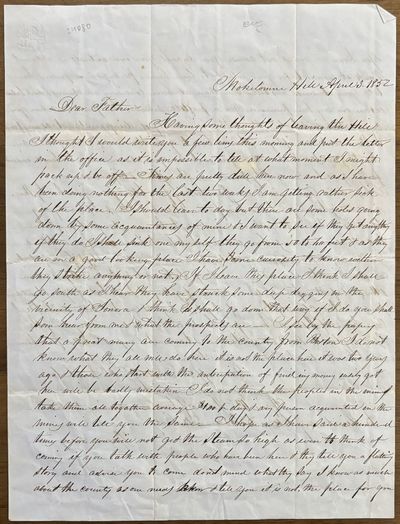 Mokelumne Hill April 3. 1852
Dear Father
Having some thoughts of leaving the Hill
I thought I would write you a few lines this morning and put the letter
in the office as it is impossible to tell at what moment I might
pack up & be off Times are pretty dull here now and as I have
been doing nothing for the last two weeks I am getting rather sick
of the place. I should leave to day but there are some holes going
down by some acquaintances of mine & I want to see if they get anything
if they do I shall sink one myself they go from 50 to 60 feet & as they
are in a good looking place I have some curiosity to know whether
they strike anything or not If I leave this place I think I shall
go South as I hear they have struck some deep diggings in the
vicinity of Sonora I think I shall go down that way if I do you shall
soon hear from me & what the prospects are — I see by the papers
that a great many are coming to the country from Boston I do not
know what they all will do here it is not the place here it was two years
ago & those who start with the anticipation of finding money easily got
here will be badly mistaken I do not think the people in the mines
take them all together average $ pr day & any person acquainted in the
mines will tell you the same I hope as I have said a hundred
times before you will not get the steam so high as even to think of
coming if you talk with people who have been here & they tell you a flattering
story and advise you to come dont mind what they say I know as much
about the country as our men & I tell you it is not the place for you